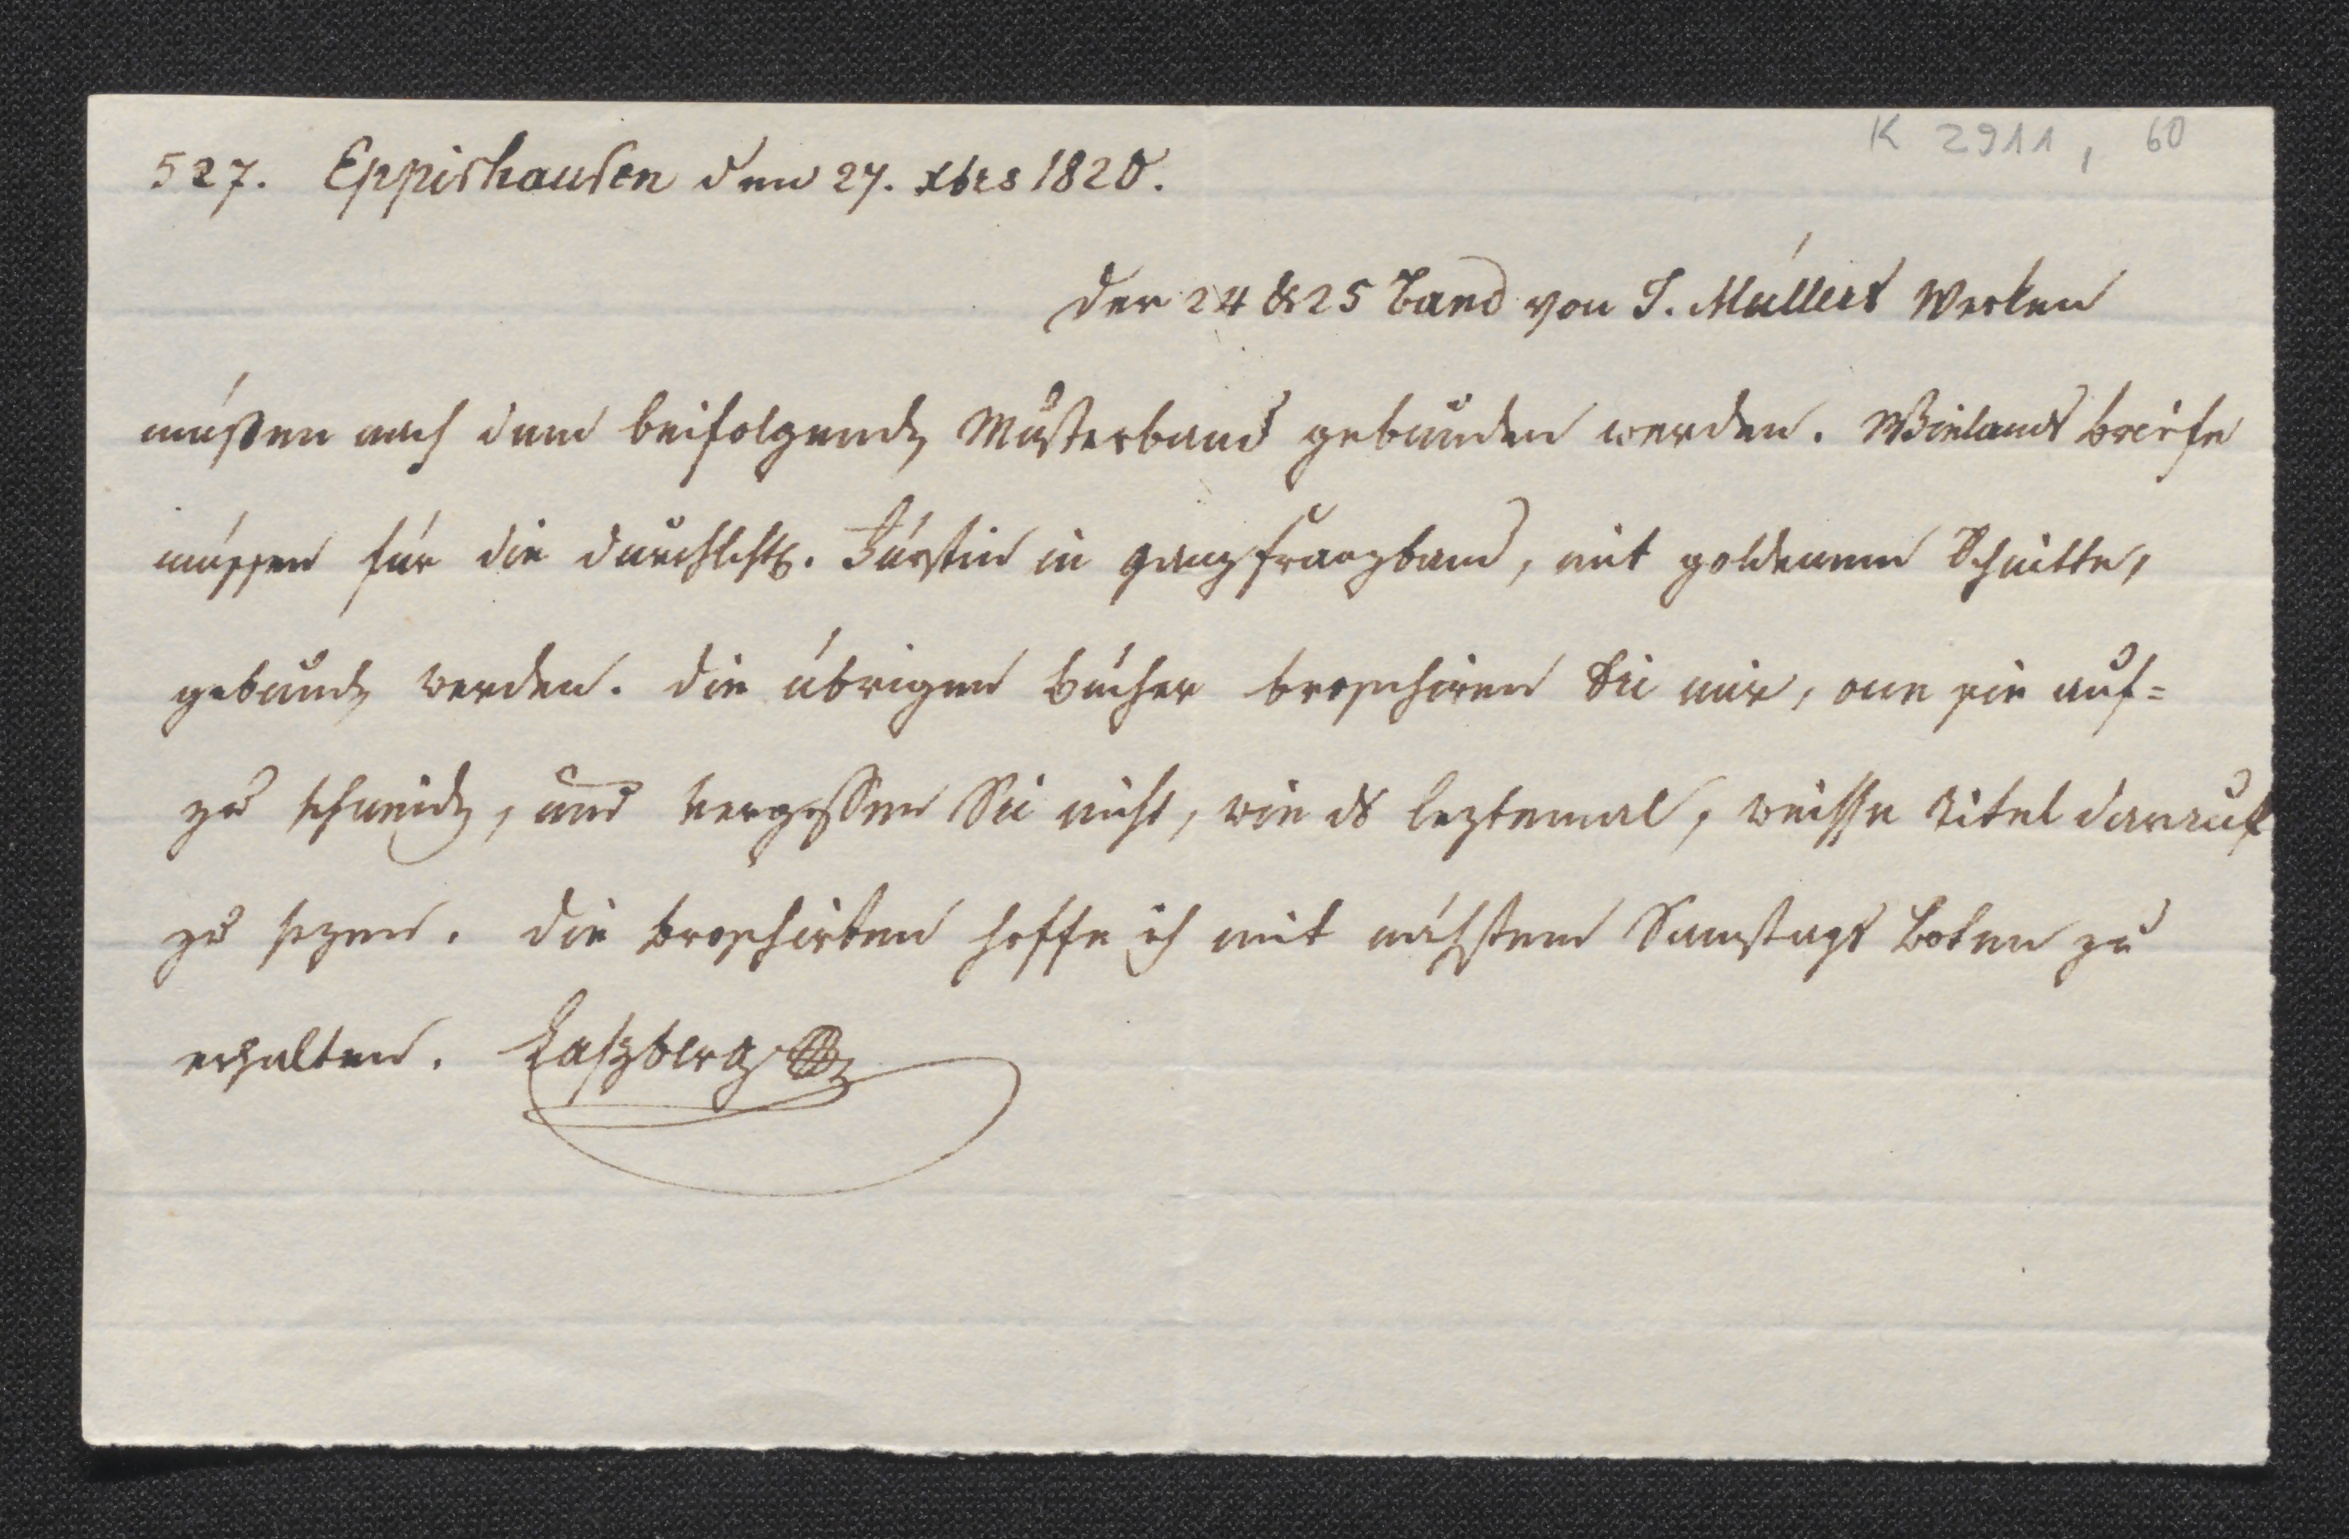 K 2911, 60
527. Eppishausen den 27. xbrs 1820.
der 24 & 25 Band von J. Müllers Werken
müßen nach dem beifolgenden Musterband gebunden werden. Wielands briefe
müssen für die durchlchtg. Fürstin in ganz franzband, mit goldenem Schnitte,
gebunden werden. die übrigen bücher broschiren Sie mir, one sie auf=
zu schneiden, und vergessen Sie nicht, wie ds leztemal, weisse titel darauf
zu sezen. die broschirten hoffe ich mit nächstem Samstags boten zu
erhalten. Laszberg